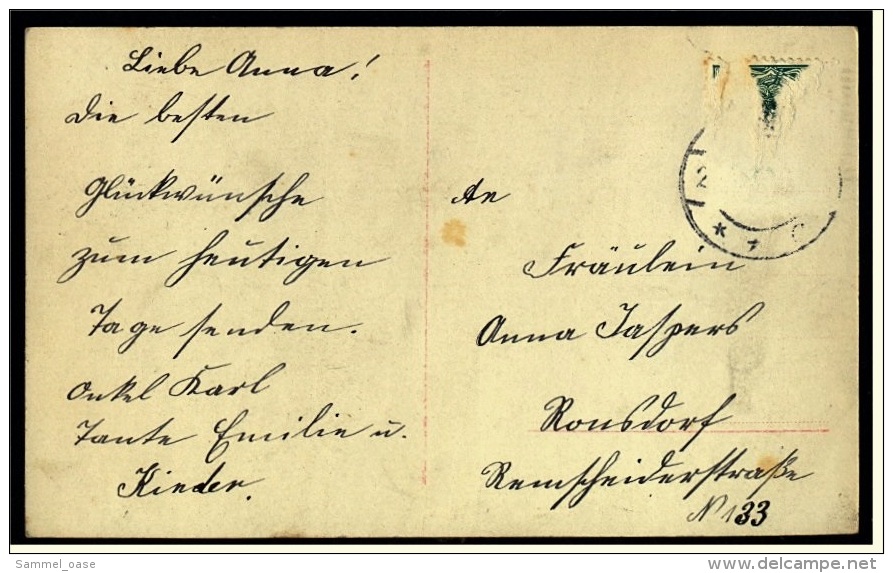 Liebe Anna!
Die besten
Glückwünsche
zum heutigen
Tage senden.
Onkel Karl
Tante Emilie u.
Kinder.
An
Fräulein
Anna Jaspers
Ronsdorf
Remscheiderstraße
N 133
Sammel_oase
www.delcampe.net